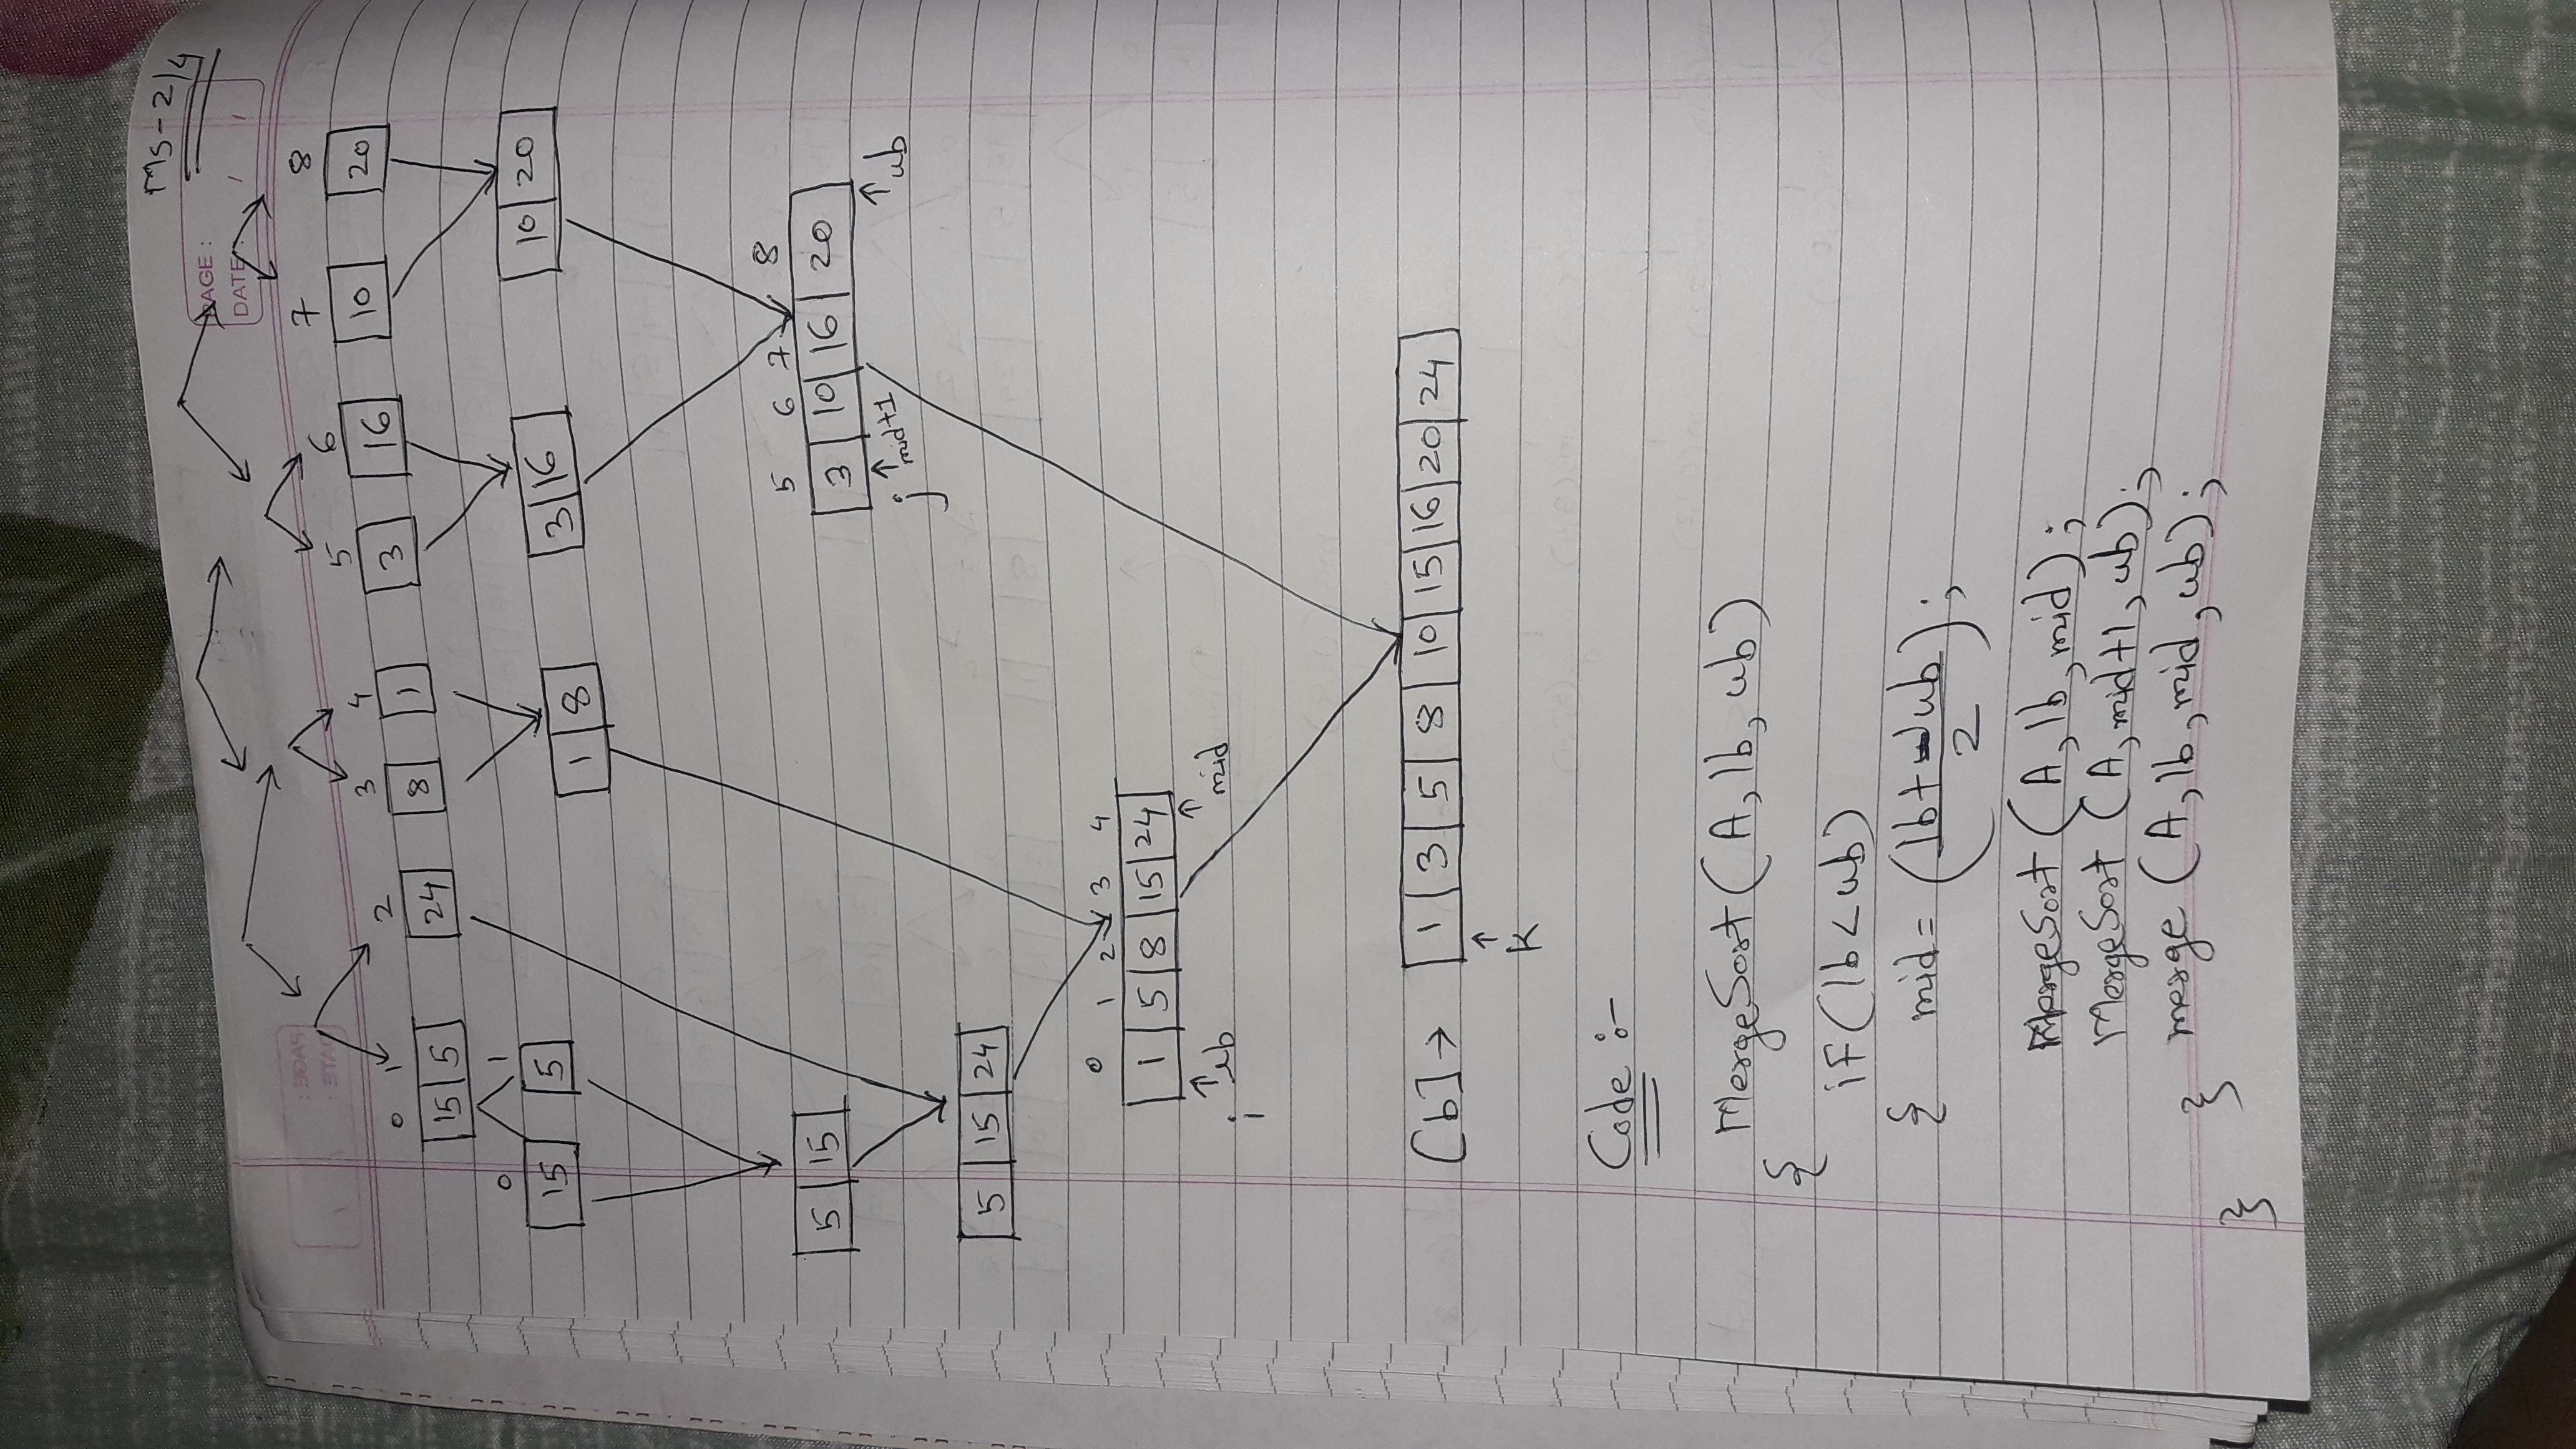 MS-2/4
PAGE :
DATE : / /
0 1 2 3 4 5 6 7 8
15 5 24 8 1 3 16 10 20
0 1
15 5 1 8 3 16 10 20
5 6 7 8
5 15 3 10 16 20
j mid+1 ub
5 15 24
0 1 2 3 4
1 5 8 15 24
i lb mid
[b] → 1 3 5 8 10 15 16 20 24
K
Code :-
MergeSort (A, lb, ub)
{
if (lb < ub)
{ mid = (lb + ub
2 ) ;
MergeSort (A, lb, mid) ;
MergeSort (A, mid+1, ub) ;
merge (A, lb, mid, ub) ;
}
}